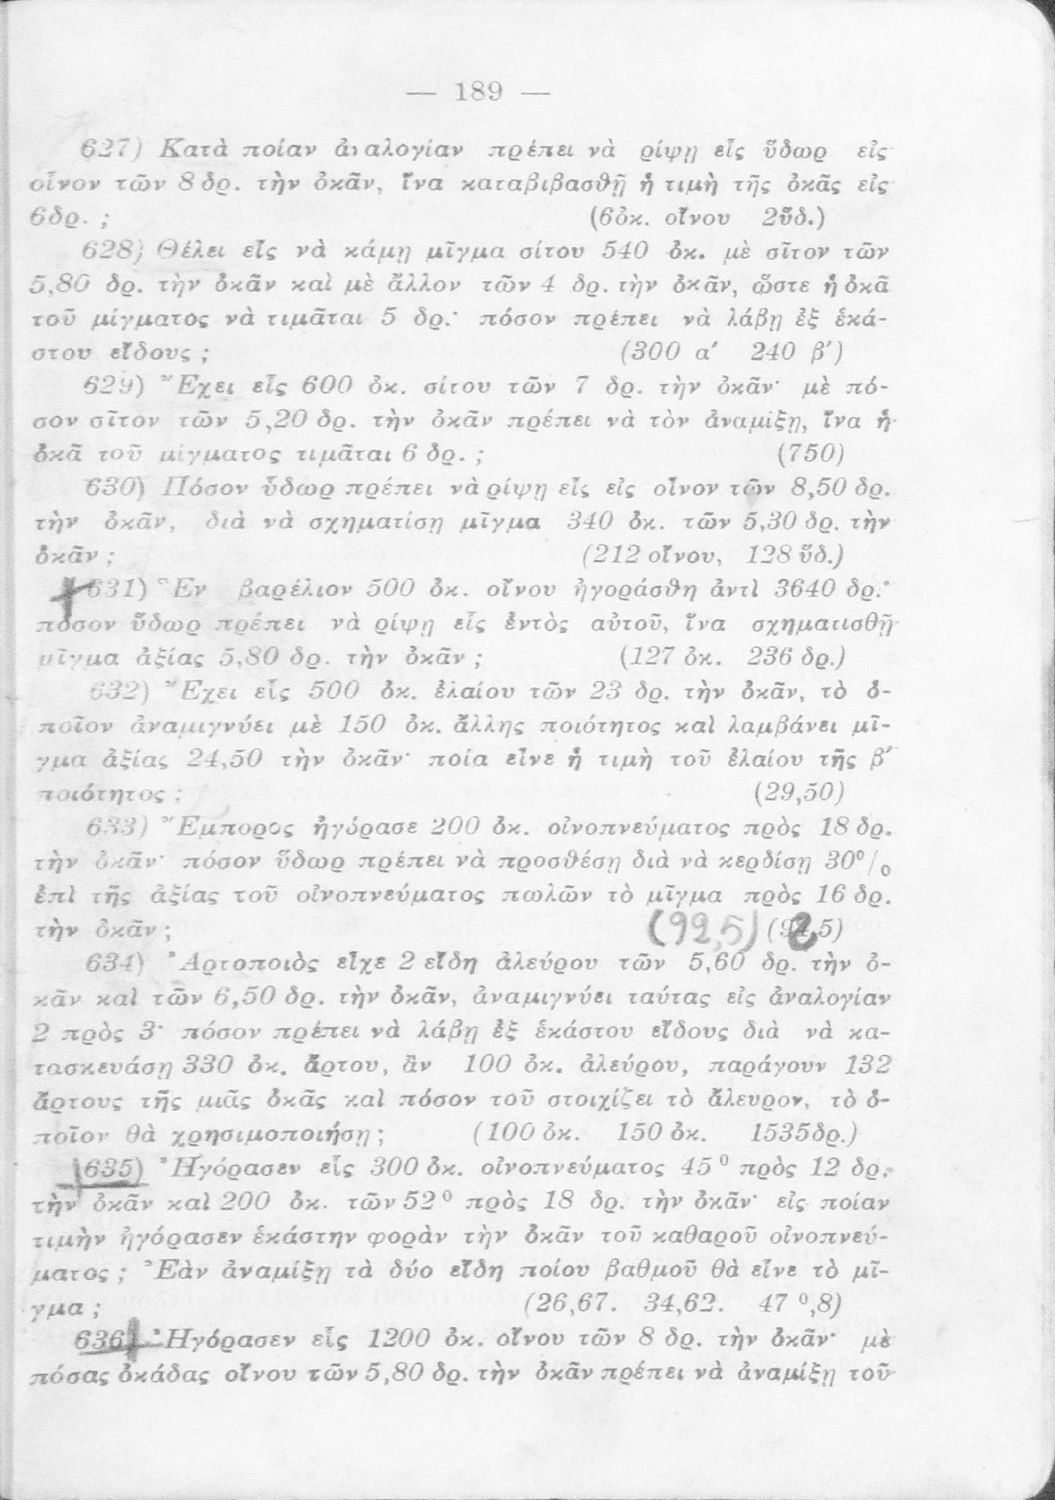 — 189 —
627) Κατὰ ποίαν ἀναλογίαν πρέπει νὰ ρίψῃ εἷς ὕδωρ εἰς
οἶνον τῶν 8 δρ. τὴν ὀκᾶν, ἵνα καταβιβασθῇ ἡ τιμὴ τῆς ὀκᾶς εἰς
6δρ. ; (6ὀκ. οἴνου 2ὕδ.)
628) Θέλει εἷς νὰ κάμῃ μῖγμα σίτου 540 ὀκ. μὲ σῖτον τῶν
5,80 δρ. τὴν ὀκᾶν καὶ μὲ ἄλλον τῶν 4 δρ. τὴν ὀκᾶν, ὥστε ἡ ὀκᾶ
τοῦ μίγματος νὰ τιμᾶται 5 δρ.· πόσον πρέπει νὰ λάβῃ ἐξ ἑκά-
στου εἴδους ; (300 α′ 240 β′)
629) Ἔχει εἷς 600 ὀκ. σίτου τῶν 7 δρ. τὴν ὀκᾶν· μὲ πό-
σον σῖτον τῶν 5,20 δρ. τὴν ὀκᾶν πρέπει νὰ τὸν ἀναμίξῃ, ἵνα ἡ
ὀκᾶ τοῦ μίγματος τιμᾶται 6 δρ. ; (750)
630) Πόσον ὕδωρ πρέπει νὰ ρίψῃ εἷς εἰς οἶνον τῶν 8,50 δρ.
τὴν ὀκᾶν, διὰ νὰ σχηματίσῃ μῖγμα 340 ὀκ. τῶν 5,30 δρ. τὴν
ὀκᾶν ; (212 οἴνου, 128 ὕδ.)
631) Ἓν βαρέλιον 500 ὀκ. οἴνου ἠγοράσθη ἀντὶ 3640 δρ.·
πόσον ὕδωρ πρέπει νὰ ρίψῃ εἷς ἐντὸς αὐτοῦ, ἵνα σχηματισθῇ
μῖγμα ἀξίας 5,80 δρ. τὴν ὀκᾶν ; (127 ὀκ. 236 δρ.)
632) Ἔχει εἷς 500 ὀκ. ἐλαίου τῶν 23 δρ. τὴν ὀκᾶν, τὸ ὁ-
ποῖον ἀναμιγνύει μὲ 150 ὀκ. ἄλλης ποιότητος καὶ λαμβάνει μῖ-
γμα ἀξίας 24,50 τὴν ὀκᾶν· ποία εἶνε ἡ τιμὴ τοῦ ἐλαίου τῆς β′
ποιότητος ; (29,50)
633) Ἔμπορος ἠγόρασε 200 ὀκ. οἰνοπνεύματος πρὸς 18 δρ.
τὴν ὀκᾶν· πόσον ὕδωρ πρέπει νὰ προσθέσῃ διὰ νὰ κερδίσῃ 30⁰/₀
ἐπὶ τῆς ἀξίας τοῦ οἰνοπνεύματος πωλῶν τὸ μῖγμα πρὸς 16 δρ.
τὴν ὀκᾶν ; (92,5) (92,5)
634) Ἀρτοποιὸς εἶχε 2 εἴδη ἀλεύρου τῶν 5,60 δρ. τὴν ὀ-
κᾶν καὶ τῶν 6,50 δρ. τὴν ὀκᾶν, ἀναμιγνύει ταύτας εἰς ἀναλογίαν
2 πρὸς 3· πόσον πρέπει νὰ λάβῃ ἐξ ἑκάστου εἴδους διὰ νὰ κα-
τασκευάσῃ 330 ὀκ. ἄρτου, ἂν 100 ὀκ. ἀλεύρου, παράγουν 132
ἄρτους τῆς μιᾶς ὀκᾶς καὶ πόσον τοῦ στοιχίζει τὸ ἄλευρον, τὸ ὁ-
ποῖον θὰ χρησιμοποιήσῃ ; (100 ὀκ. 150 ὀκ. 1535δρ.)
635) Ἠγόρασεν εἷς 300 ὀκ. οἰνοπνεύματος 45⁰ πρὸς 12 δρ.
τὴν ὀκᾶν καὶ 200 ὀκ. τῶν 52⁰ πρὸς 18 δρ. τὴν ὀκᾶν· εἰς ποίαν
τιμὴν ἠγόρασεν ἑκάστην φορὰν τὴν ὀκᾶν τοῦ καθαροῦ οἰνοπνεύ-
ματος ; Ἐὰν ἀναμίξῃ τὰ δύο εἴδη ποίου βαθμοῦ θὰ εἶνε τὸ μῖ-
γμα ; (26,67. 34,62. 47⁰,8)
636) Ἠγόρασεν εἷς 1200 ὀκ. οἴνου τῶν 8 δρ. τὴν ὀκᾶν· μὲ
πόσας ὀκάδας οἴνου τῶν 5,80 δρ. τὴν ὀκᾶν πρέπει νὰ ἀναμίξῃ τοῦ